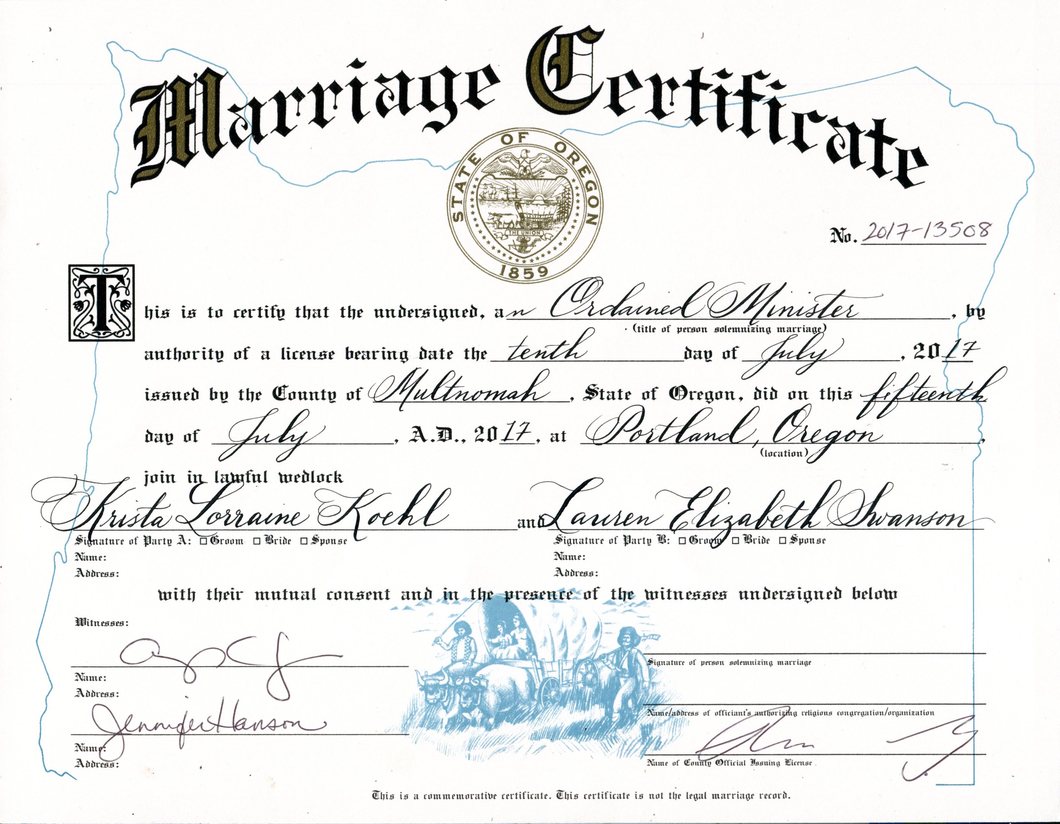 Marriage Certificate
STATE OF OREGON
THE UNION
1859
No. 2017-13508
This is to certify that the undersigned, an Ordained Minister, by
(title of person solemnizing marriage)
authority of a license bearing date the tenth day of July, 2017
issued by the County of Multnomah, State of Oregon, did on this fifteenth
day of July, A.D., 2017, at Portland, Oregon,
(location)
join in lawful wedlock
Krista Lorraine Koehl and Lauren Elizabeth Swanson
Signature of Party A: ☐ Groom ☐ Bride ☐ Spouse Signature of Party B: ☐ Groom ☐ Bride ☐ Spouse
Name: Name:
Address: Address:
with their mutual consent and in the presence of the witnesses undersigned below
Witnesses:
Signature of person solemnizing marriage
Name:
Address:
Name/address of officiant's authorizing religious congregation/organization
Jennifer Hanson
Name:
Address:
Name of County Official Issuing License
This is a commemorative certificate. This certificate is not the legal marriage record.